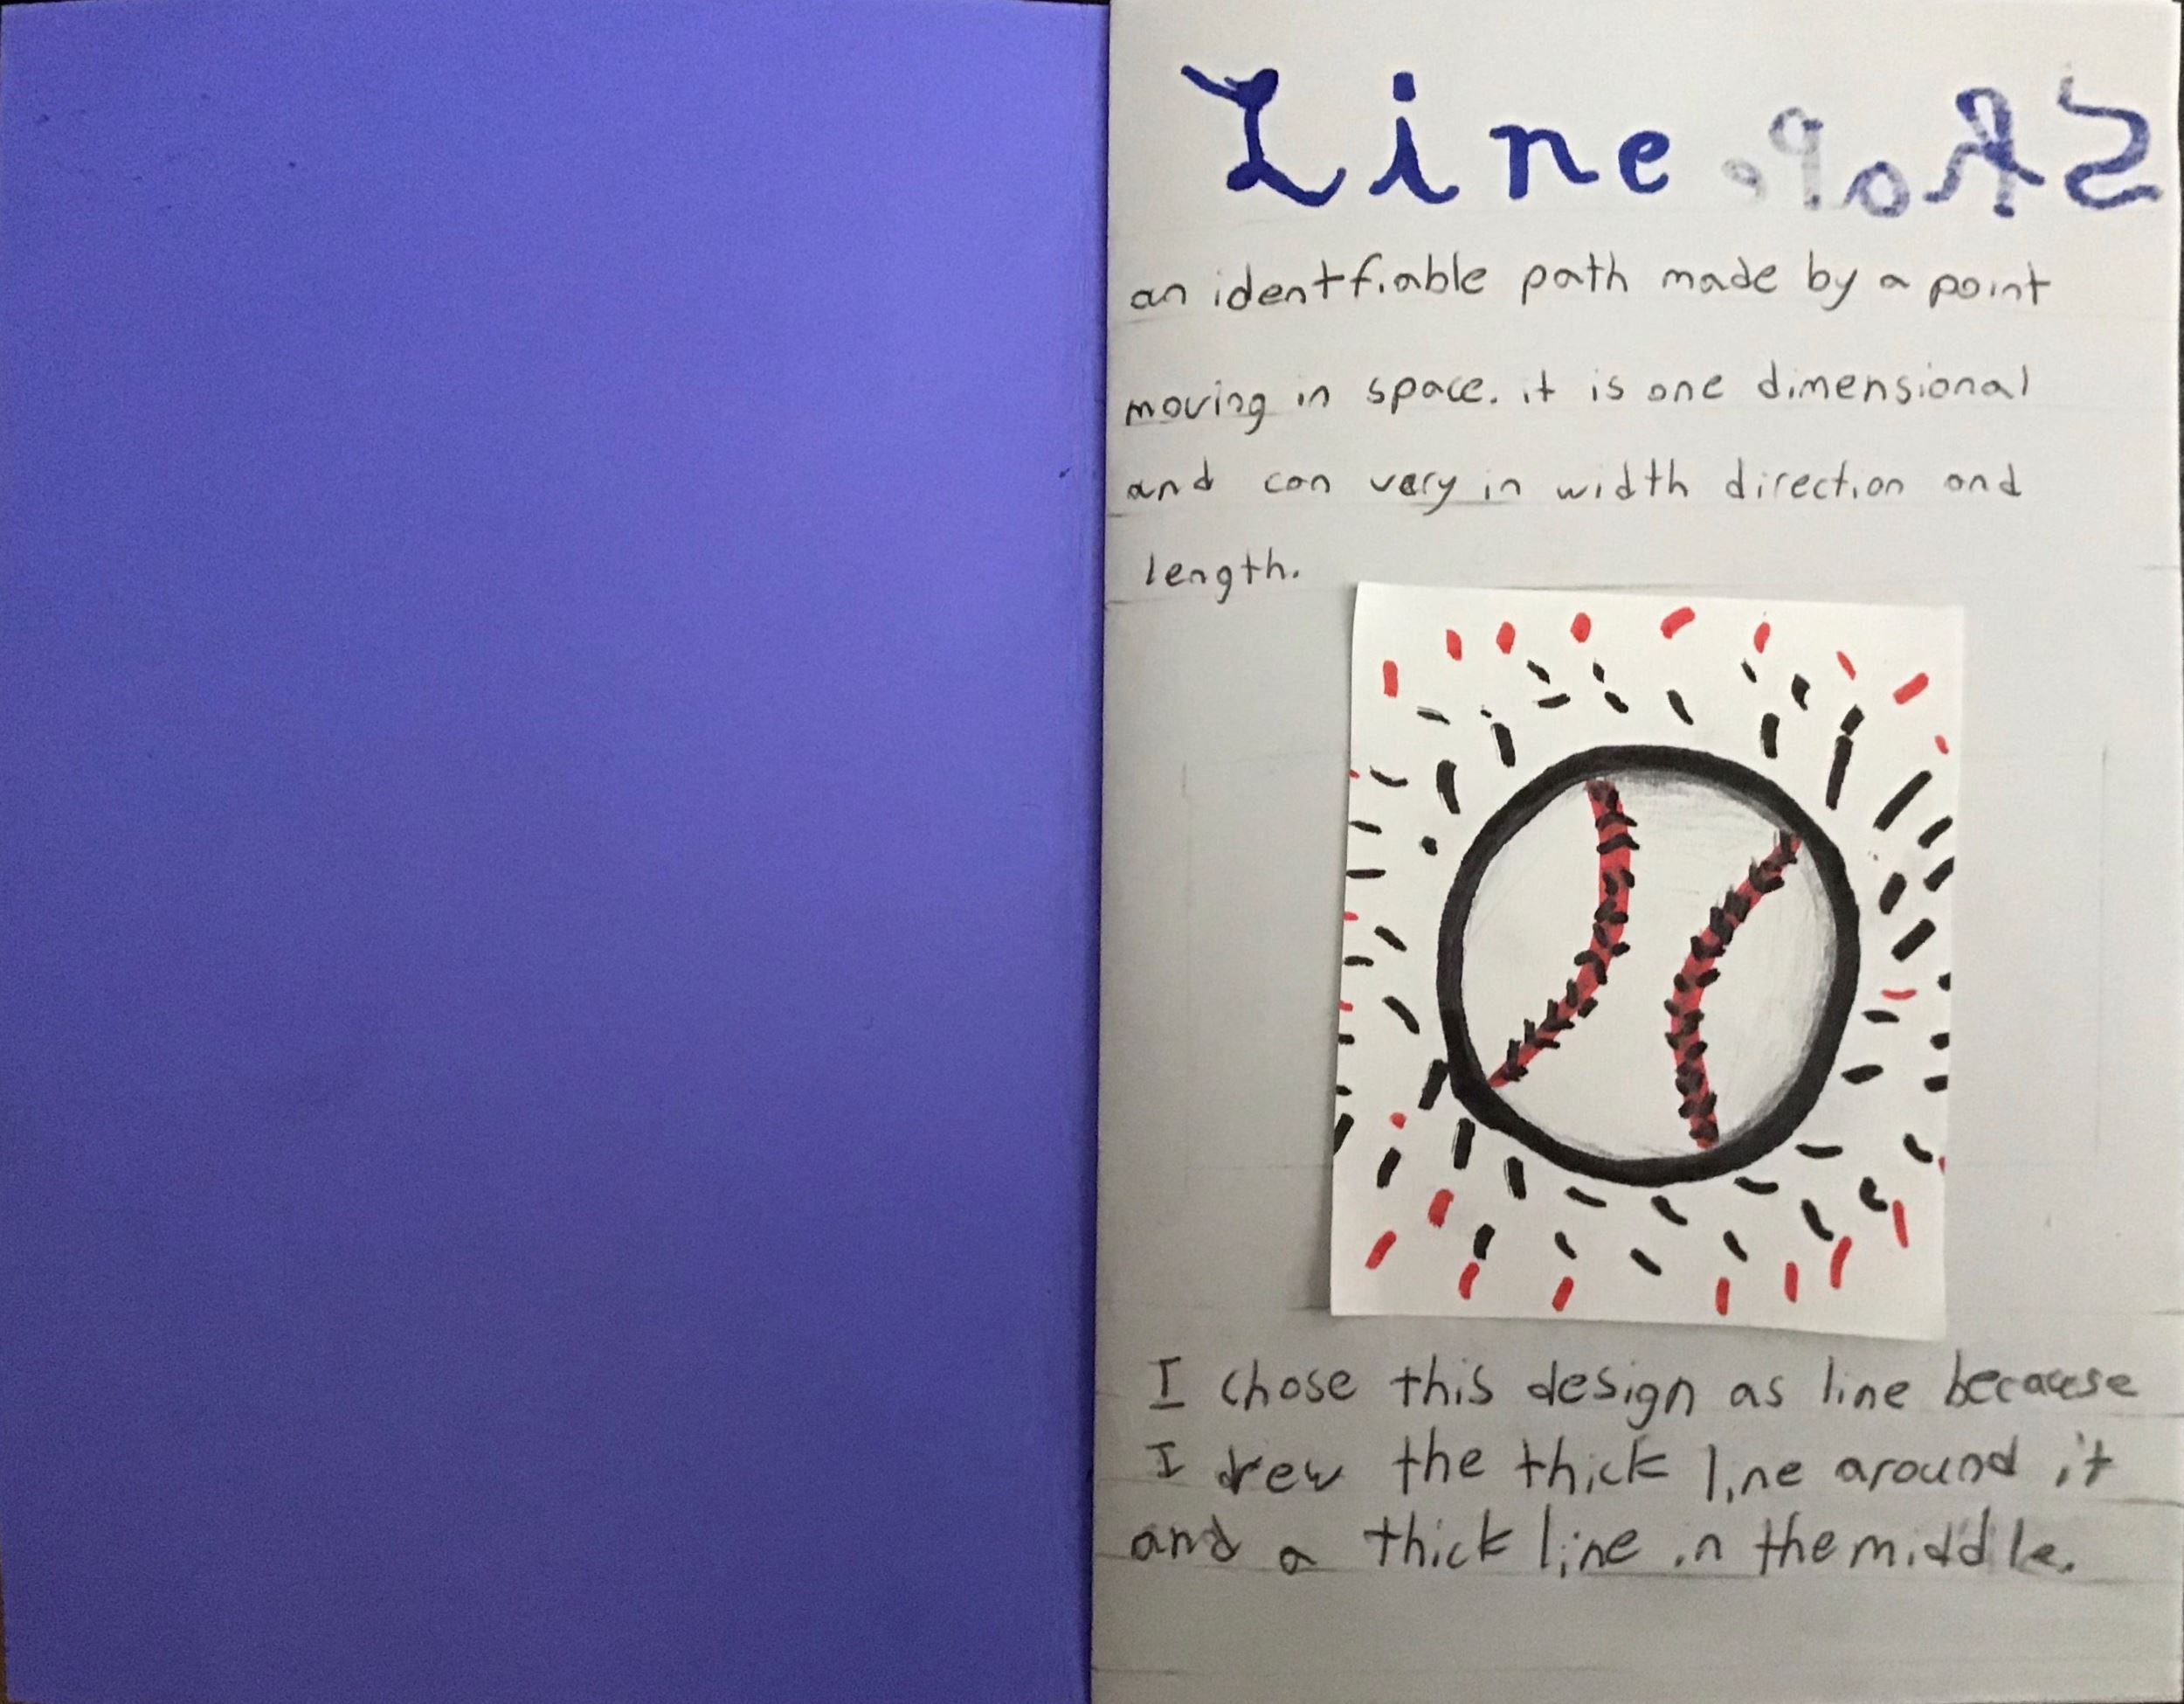 Line Shape
an identfiable path made by a point
moving in space. it is one dimensional
and can vary in width direction and
length.
I chose this design as line because
I drew the thick line around it
and a thick line in the middle.